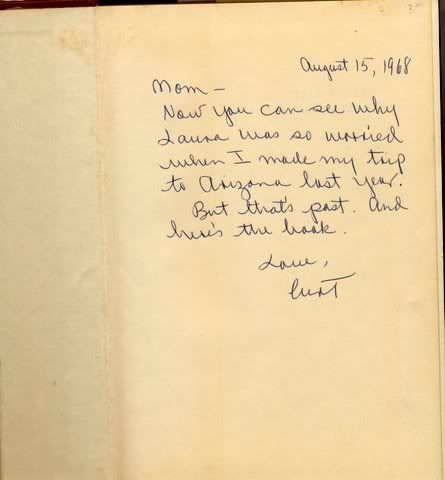 August 15, 1968
Mom —
Now you can see why
Laura was so worried
when I made my trip
to Arizona last year.
But that's past. And
here's the book.
Love,
Curt